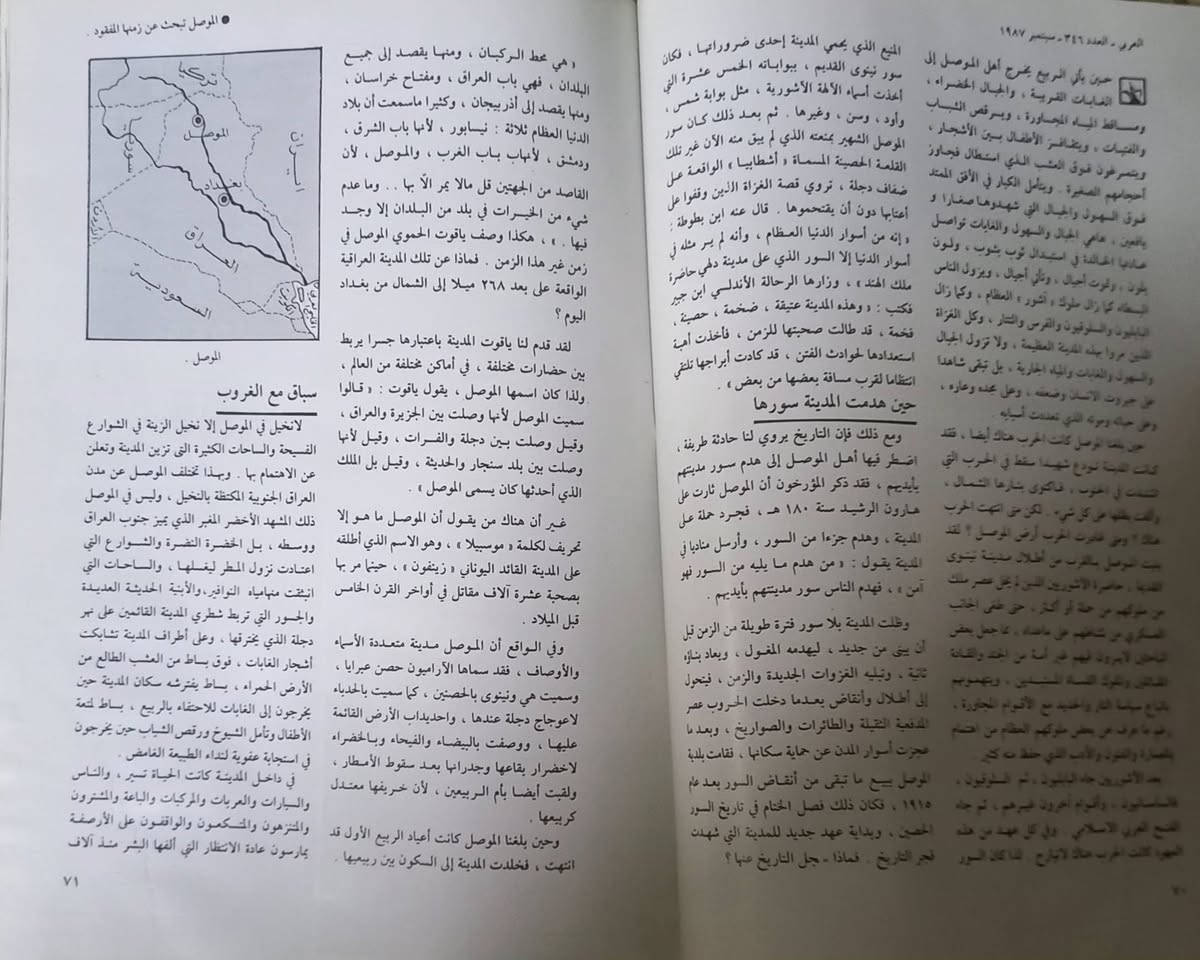 العربي - العدد ٣٤٦ - سبتمبر ١٩٨٧
حين يأتي الربيع يخرج أهل الموصل إلى
الغابات القريبة ، والجبال الخضراء ،
ومساقط المياه المجاورة ، ويرقص الشباب
والفتيات ، ويتقافز الأطفال بين الأشجار ،
ويتصرعون فوق العشب الذي استطال فجاوز
أحجامهم الصغيرة . ويتأمل الكبار في الأفق الممتد
فوق السهول والجبال التي شهدوها صغارا و
يافعين ، هاهي الجبال والسهول والغابات تواصل
عادتها الخالدة في استبدال ثوب بثوب ، ولون
بلون ، وتموت أجيال ، وتأتي أجيال ، ويزول الناس
البسطاء كما زال ملوك « آشور » العظام ، وكما زال
البابليون والسلوقيون والفرس والتتار ، وكل الغزاة
الذين مروا بهذه المدينة العظيمة ، ولا تزول الجبال
والسهول والغابات والمياه الجارية ، بل تبقى شاهدا
على جبروت الانسان وضعفه ، وعلى مجده وعاره ،
وعلى حياته وموته الذي تعددت أسبابه .
حين بلغنا الموصل كانت الحرب هناك أيضا ، فقد
كانت المدينة تودع شهيدا سقط في الحرب التي
اشتدت في الجنوب ، فاكتوى بنارها الشمال ،
وألقت بظلها على كل شيء . لكن متى انتهت الحرب
هناك ؟ ومتى غادرت الحرب أرض الموصل ؟ لقد
بنيت الموصل بالقرب من أطلال مدينة نينوى
القديمة ، حاضرة الآشوريين الذين لم يخل عصر ملك
من ملوكهم من حملة أو أكثر ، حتى طغى الجانب
العسكري من نشاطهم على ماعداه ، مما جعل بعض
الباحثين لايرون فيهم غير أمة من الجند والقادة
المقاتلين والملوك القساة المستبدين ، ويتهمونهم
باتباع سياسة النار والحديد مع الأقوام المجاورة ،
رغم ما عرف عن بعض ملوكهم العظام من اهتمام
بالعمارة والفنون والأدب الذي حفظ منه كثير .
بعد الآشوريين جاء البابليون ، ثم السلوقيون ،
فالساسانيون ، وأقوام آخرون غيرهم ، ثم جاء
الفتح العربي الاسلامي . وفي كل عهد من هذه
العهود كانت الحرب هناك لاتبارح . لذا كان السور
المنيع الذي يحمي المدينة إحدى ضروراتها ، فكان
سور نينوى القديم ، ببواباته الخمس عشرة التي
أخذت أسماء الآلهة الآشورية ، مثل بوابة شمس ،
وأود ، وسن ، وغيرها . ثم بعد ذلك كان سور
الموصل الشهير بمنعته الذي لم يبق منه الآن غير تلك
القلعة الحصينة المسماة « أشطابيا » الواقعة على
ضفاف دجلة ، تروي قصة الغزاة الذين وقفوا على
أعتابها دون أن يقتحموها . قال عنه ابن بطوطة :
« إنه من أسوار الدنيا العظام ، وأنه لم ير مثله في
أسوار الدنيا إلا السور الذي على مدينة دلهي حاضرة
ملك الهند » ، وزارها الرحالة الأندلسي ابن جبير
فكتب : « وهذه المدينة عتيقة ، ضخمة ، حصينة ،
فخمة ، قد طالت صحبتها للزمن ، فأخذت أهبة
استعدادها لحوادث الفتن ، قد كادت أبراجها تلتقي
انتظاما لقرب مسافة بعضها من بعض » .
حين هدمت المدينة سورها
ومع ذلك فإن التاريخ يروي لنا حادثة طريفة ،
اضطر فيها أهل الموصل إلى هدم سور مدينتهم
بأيديهم ، فقد ذكر المؤرخون أن الموصل ثارت على
هارون الرشيد سنة ١٨٠ هـ ، فجرد حملة على
المدينة ، وهدم جزءا من السور ، وأرسل مناديا في
المدينة يقول : « من هدم ما يليه من السور فهو
آمن » ، فهدم الناس سور مدينتهم بأيديهم .
وظلت المدينة بلا سور فترة طويلة من الزمن قبل
أن يبنى من جديد ، ليهدمه المغول ، ويعاد بناؤه
ثانية ، وتبليه الغزوات الجديدة والزمن ، فيتحول
إلى أطلال وأنقاض بعدما دخلت الحروب عصر
المدفعية الثقيلة والطائرات والصواريخ ، وبعدما
عجزت أسوار المدن عن حماية سكانها ، فقامت بلدية
الموصل ببيع ما تبقى من أنقاض السور بعد عام
١٩١٥ ، فكان ذلك فصل الختام في تاريخ السور
الحصين ، وبداية عهد جديد للمدينة التي شهدت
فجر التاريخ . فماذا - جل التاريخ عنها ؟
٧٠
● الموصل تبحث عن زمنها المفقود .
« هي محط الركبان ، ومنها يقصد إلى جميع
البلدان ، فهي باب العراق ، ومفتاح خراسان ،
ومنها يقصد إلى أذربيجان ، وكثيرا ماسمعت أن بلاد
الدنيا العظام ثلاثة : نيسابور ، لأنها باب الشرق ،
ودمشق ، لأنهاب باب الغرب ، والموصل ، لأن
القاصد من الجهتين قل مالا يمر الّا بها .. وما عدم
شيء من الخيرات في بلد من البلدان إلا وجد
فيها . » ، هكذا وصف ياقوت الحموي الموصل في
زمن غير هذا الزمن . فماذا عن تلك المدينة العراقية
الواقعة على بعد ٢٦٨ ميلا إلى الشمال من بغداد
اليوم ؟
لقد قدم لنا ياقوت المدينة باعتبارها جسرا يربط
بين حضارات مختلفة ، في أماكن مختلفة من العالم ,
ولذا كان اسمها الموصل ، يقول ياقوت : « قالوا
سميت الموصل لأنها وصلت بين الجزيرة والعراق ،
وقيل وصلت بين دجلة والفرات ، وقيل لأنها
وصلت بين بلد سنجار والحديثة ، وقيل بل الملك
الذي أحدثها كان يسمى الموصل » .
غير أن هناك من يقول أن الموصل ما هو إلا
تحريف لكلمة « موسيلا » ، وهو الاسم الذي أطلقه
على المدينة القائد اليوناني « زينفون » ، حينما مر بها
بصحبة عشرة آلاف مقاتل في أواخر القرن الخامس
قبل الميلاد .
وفي الواقع أن الموصل مدينة متعددة الأسماء
والأوصاف ، فقد سماها الآراميون حصن عبرايا ،
وسميت هي ونينوى بالحصنين ، كما سميت بالحدباء
لاعوجاج دجلة عندها ، واحديداب الأرض القائمة
عليها ، ووصفت بالبيضاء والفيحاء وبالخضراء
لاخضرار بقاعها وجدرانها بعد سقوط الأمطار ،
ولقبت أيضا بأم الربيعين ، لأن خريفها معتدل
كربيعها .
وحين بلغنا الموصل كانت أعياد الربيع الأول قد
انتهت ، فخلدت المدينة إلى السكون بين ربيعيها .
تركيا
الموصل
سوريا
ايران
بغداد
الاردن
العراق
السعودية
الكويت
الخليج العربي
الموصل .
سباق مع الغروب
لانخيل في الموصل إلا نخيل الزينة في الشوارع
الفسيحة والساحات الكثيرة التى تزين المدينة وتعلن
عن الاهتمام بها . وبهذا تختلف الموصل عن مدن
العراق الجنوبية المكتظة بالنخيل ، وليس في الموصل
ذلك المشهد الأخضر المغبر الذي يميز جنوب العراق
ووسطه ، بل الخضرة النضرة والشوارع التي
اعتادت نزول المطر ليغسلها ، والساحات التي
انبثقت منهامياه النوافير،والأبنية الحديثة العديدة
والجسور التي تربط شطري المدينة القائمين على نهر
دجلة الذي يخترقها ، وعلى أطراف المدينة تشابكت
أشجار الغابات ، فوق بساط من العشب الطالع من
الأرض الحمراء ، بساط يفترشه سكان المدينة حين
يخرجون إلى الغابات للاحتفاء بالربيع ، بساط لمتعة
الأطفال وتأمل الشيوخ ورقص الشباب حين يخرجون
في استجابة عفوية لنداء الطبيعة الغامض .
في داخل المدينة كانت الحياة تسير ، والناس
والسيارات والعربات والمركبات والباعة والمشترون
والمتنزهون والمتسكعون والواقفون على الأرصفة
يمارسون عادة الانتظار التي ألفها البشر منذ آلاف
٧١